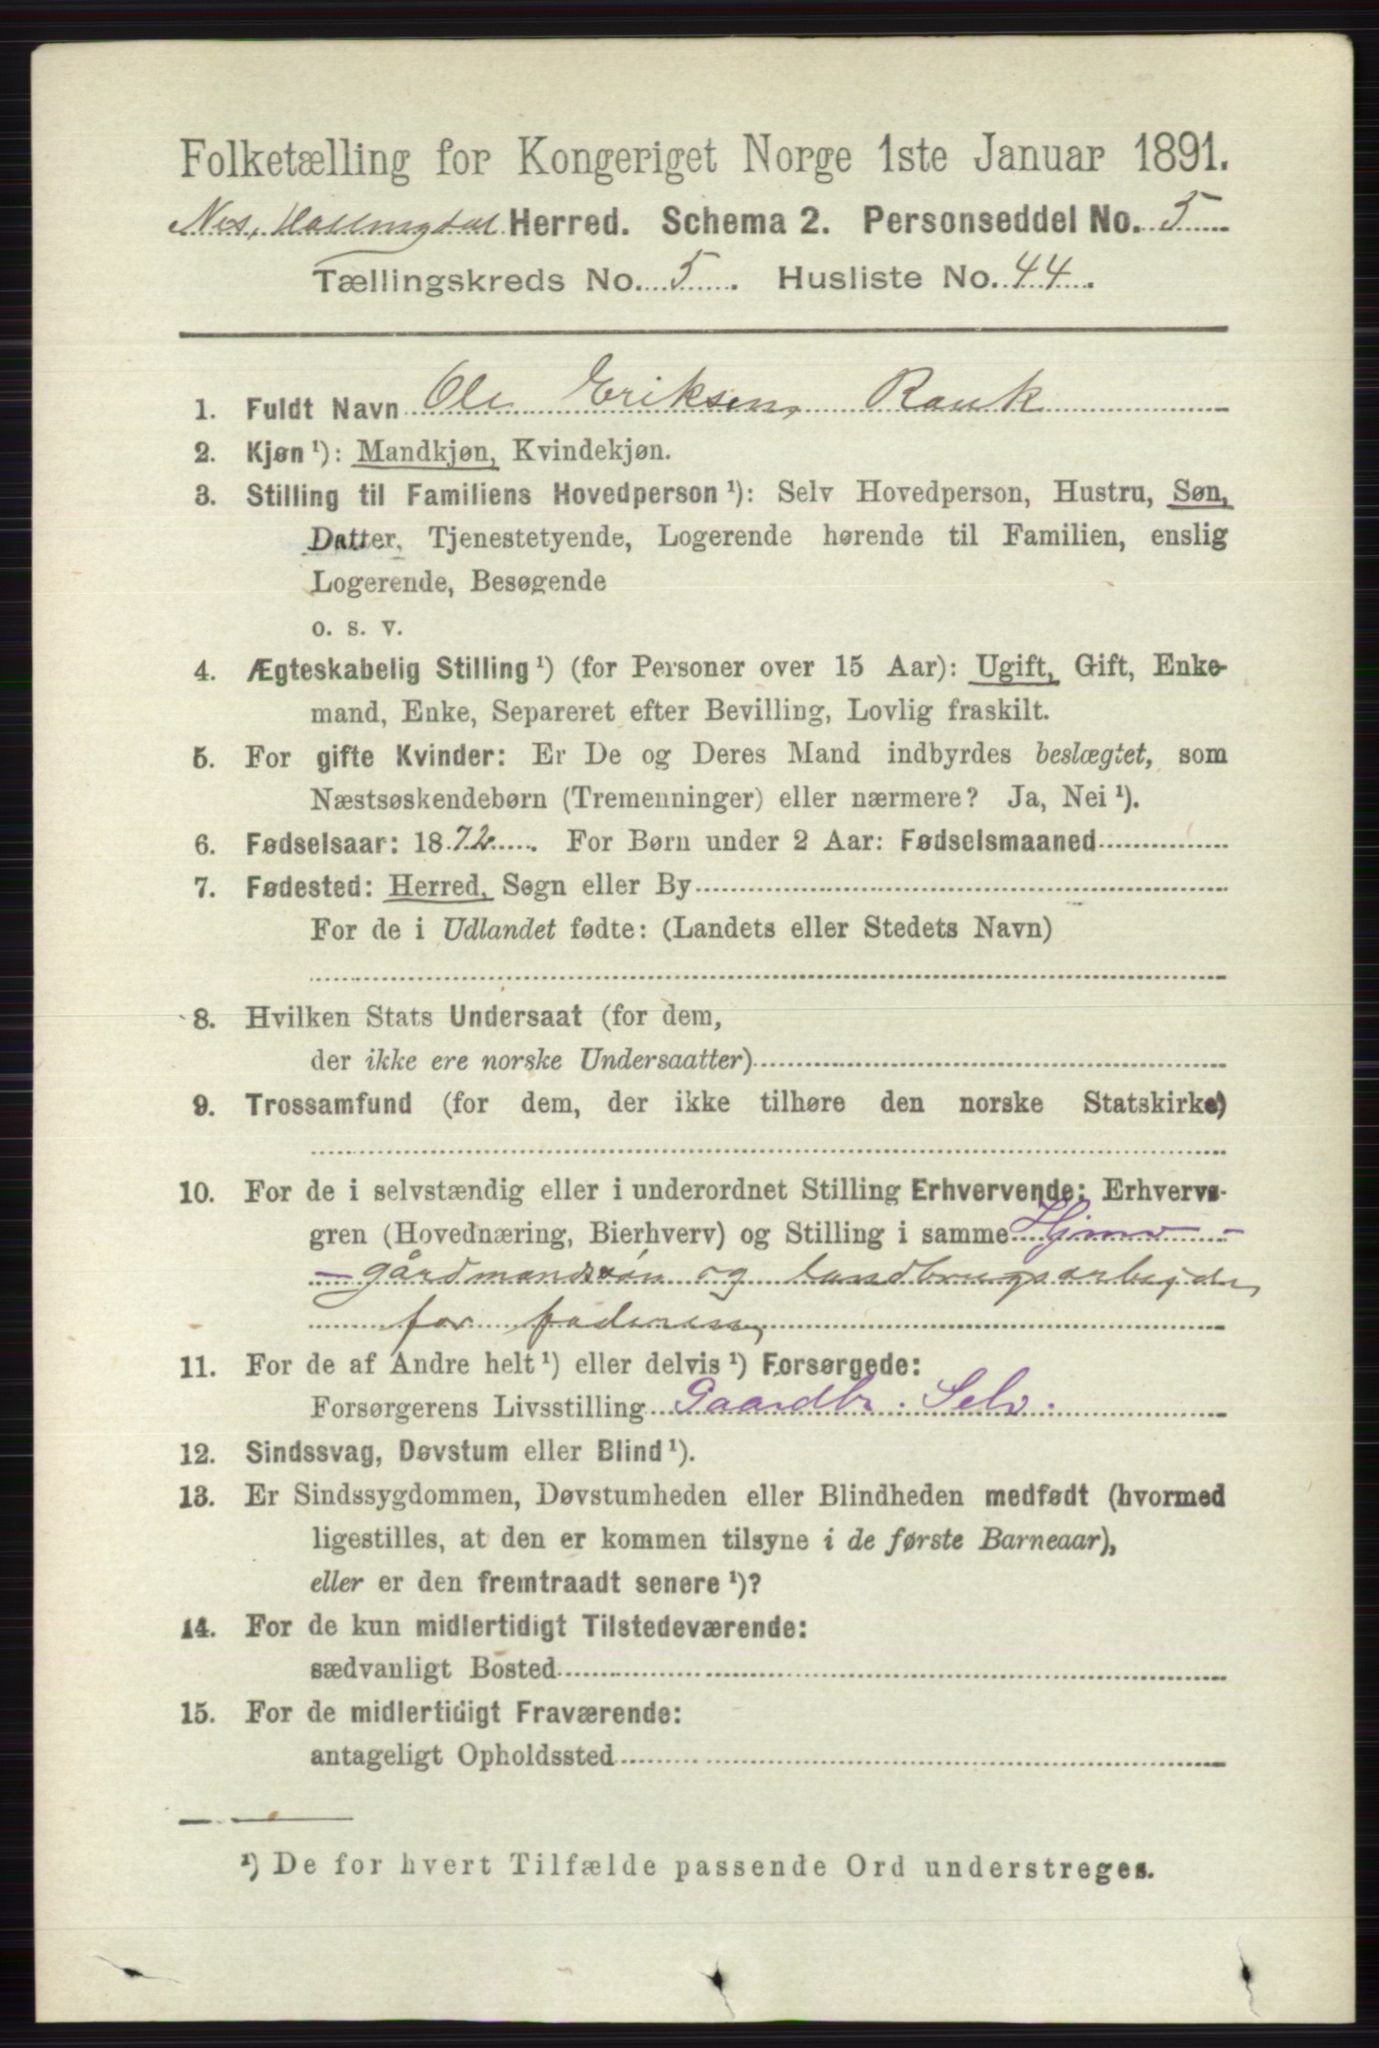 Folketælling for Kongeriget Norge 1ste Januar 1891.
Nes, Hallingdal Herred. Schema 2. Personseddel No. 5
Tællingskreds No. 5. Husliste No. 44.
1. Fuldt Navn Ole Eriksen Rauk
2. Kjøn¹): Mandkjøn, Kvindekjøn.
3. Stilling til Familiens Hovedperson¹): Selv Hovedperson, Hustru, Søn,
Datter, Tjenestetyende, Logerende hørende til Familien, enslig
Logerende, Besøgende
o. s. v.
4. Ægteskabelig Stilling¹) (for Personer over 15 Aar): Ugift, Gift, Enke-
mand, Enke, Separeret efter Bevilling, Lovlig fraskilt.
5. For gifte Kvinder: Er De og Deres Mand indbyrdes beslægtet, som
Næstsøskendebørn (Tremenninger) eller nærmere? Ja, Nei¹).
6. Fødselsaar: 1872. For Børn under 2 Aar: Fødselsmaaned
7. Fødested: Herred, Sogn eller By
For de i Udlandet fødte: (Landets eller Stedets Navn)
8. Hvilken Stats Undersaat (for dem,
der ikke ere norske Undersaatter)
9. Trossamfund (for dem, der ikke tilhøre den norske Statskirke)
10. For de i selvstændig eller i underordnet Stilling Erhvervende: Erhvervs-
gren (Hovednæring, Bierhverv) og Stilling i samme Hjmv -
- gårdmandssøn og landbrugsarbejde
for faderen,
11. For de af Andre helt¹) eller delvis¹) Forsørgede:
Forsørgerens Livsstilling Gaardbr. Selv.
12. Sindssvag, Døvstum eller Blind¹).
13. Er Sindssygdommen, Døvstumheden eller Blindheden medfødt (hvormed
ligestilles, at den er kommen tilsyne i de første Barneaar),
eller er den fremtraadt senere¹)?
14. For de kun midlertidigt Tilstedeværende:
sædvanligt Bosted
15. For de midlertidigt Fraværende:
antageligt Opholdssted
¹) De for hvert Tilfælde passende Ord understreges.